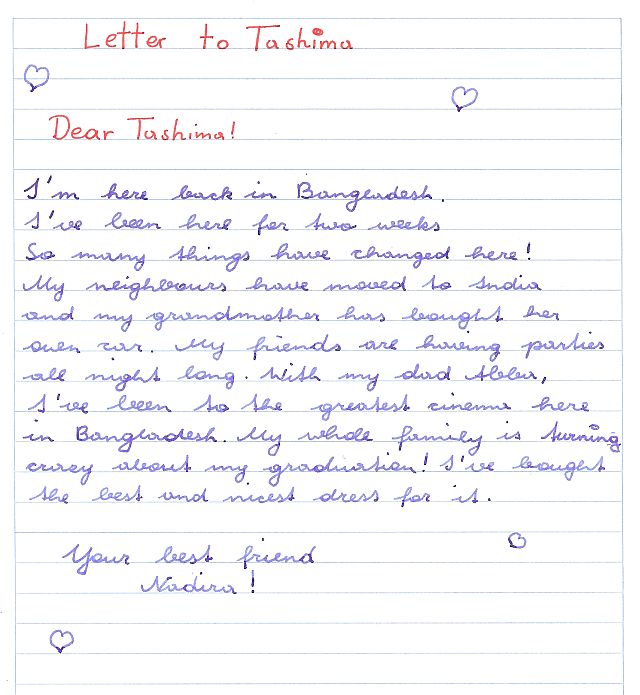 Letter to Tashima
Dear Tashima!
I'm here back in Bangladesh.
I've been here for two weeks
So many things have changed here!
My neighbours have moved to India
and my grandmother has bought her
own car. My friends are having parties
all night long. With my dad Abbu,
I've been to the greatest cinema here
in Bangladesh. My whole family is turning
crazy about my graduation! I've bought
the best and nicest dress for it.
Your best friend
Nadira!